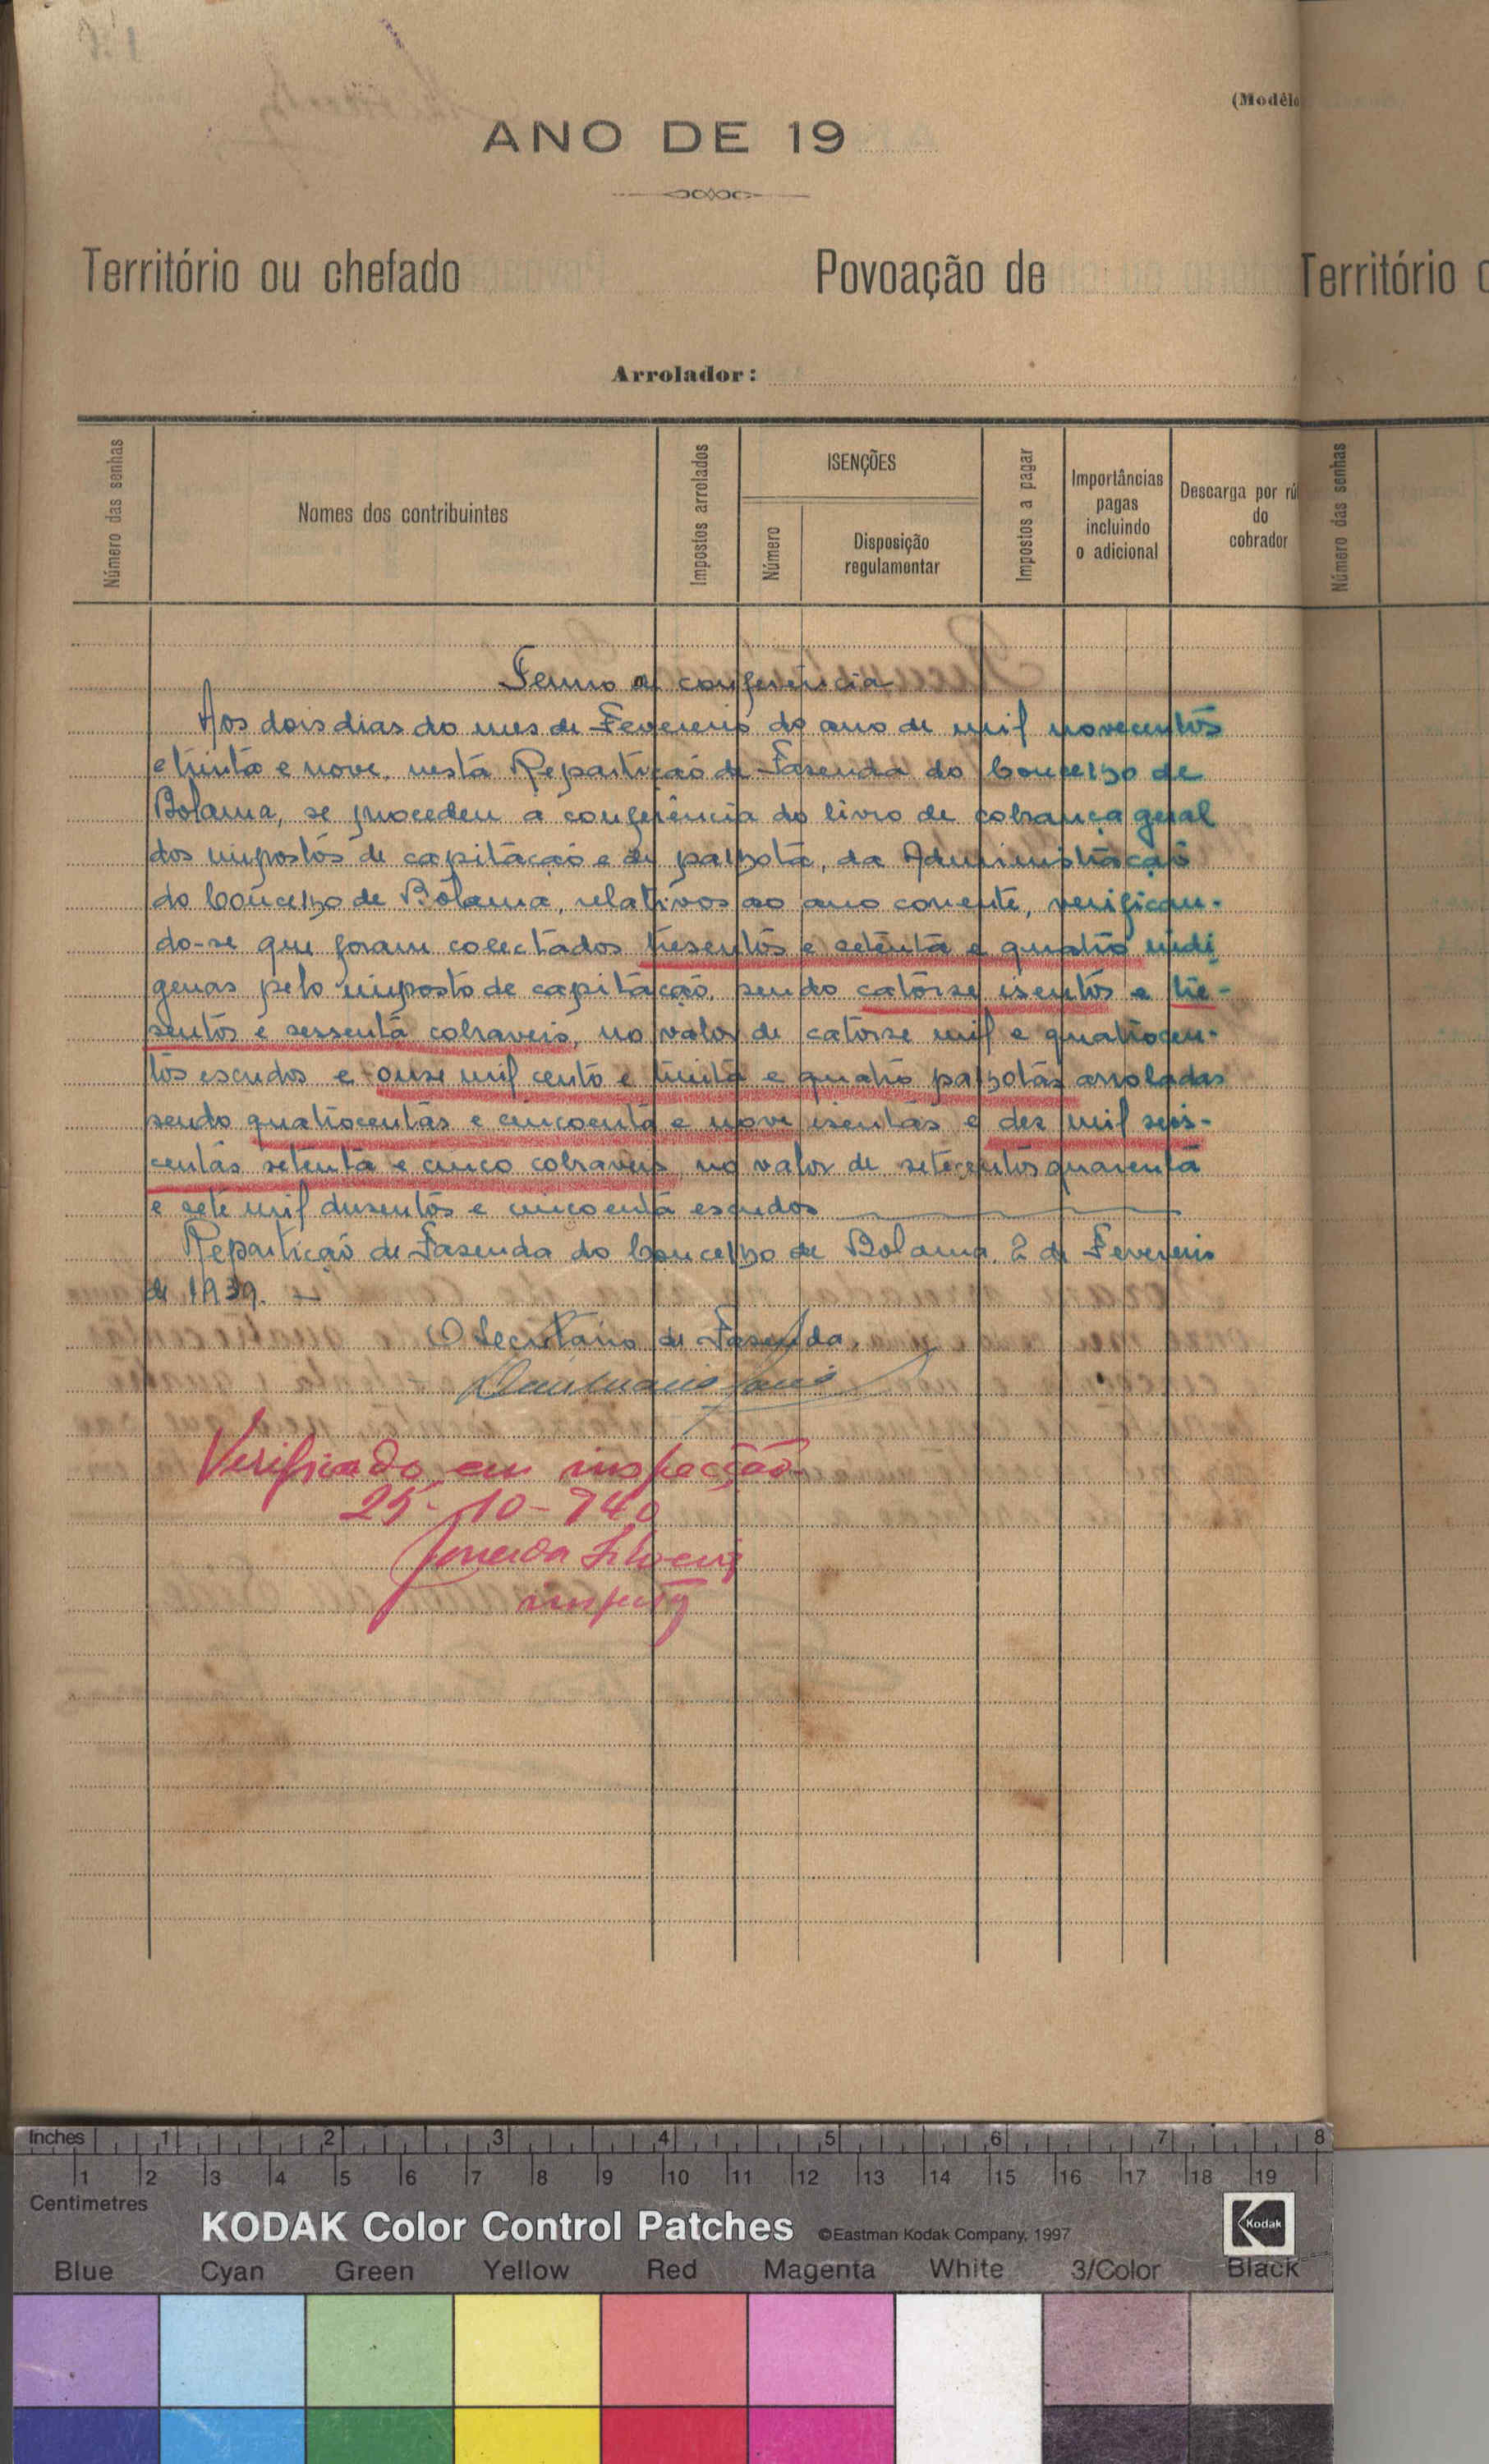 (Modêlo
ANO DE 19
Território ou chefado
Povoação de
Território
Arrolador:
Número das senhas
Nomes dos contribuintes
Impostos arrolados
ISENÇÕES
Número
Disposição
regulamentar
Impostos a pagar
Importâncias
pagas
incluindo
o adicional
Descarga por
do
cobrador
Número das senhas
Termo de conferência
Aos dois dias do mes de Fevereiro do ano de mil novecentos
e trinta e nove, nesta Repartição de Fasenda do Concelho de
Bolama, se procedeu a conferência do livro de cobrança geral
dos impostos de capitação e de palhota, da Administração
do Concelho de Bolama, relativos ao ano corrente, verifican-
do-se que foram colectados tresentos e setenta e quatro indi
genas pelo imposto de capitação, sendo catorse isentos e tre-
sentos e sessenta cobraveis, no valor de catorse mil e quatrocen-
tos escudos e onse mil cento e trinta e quatro palhotas arroladas
sendo quatrocentas e cincoenta e nove isentas e dez mil seis-
centas setenta e cinco cobraveis no valor de setecentos quarenta
e sete mil dusentos e cincoenta escudos
Repartição de Fasenda do Concelho de Bolama, 2 de Fevereiro
de 1939.
O Secretario de Fasenda,
Verificado em inspecção
25-10-940
Inches 1 2 3 4 5 6 7 8
1 2 3 4 5 6 7 8 9 10 11 12 13 14 15 16 17 18 19
Centimetres
KODAK Color Control Patches ©Eastman Kodak Company, 1997 Kodak
Blue Cyan Green Yellow Red Magenta White 3/Color Black